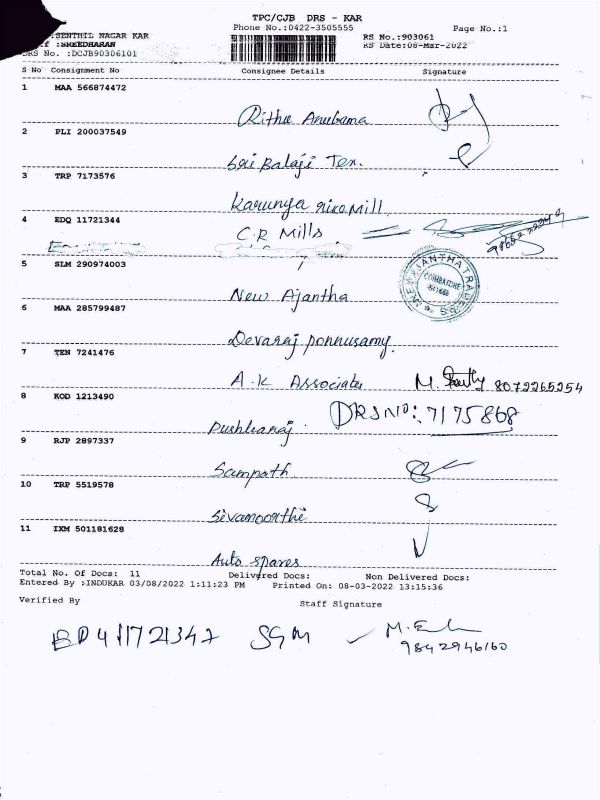 TPC/CJB DRS - KAR
Phone No.:0422-3505555 Page No.:1
:SENTHIL NAGAR KAR RS No.:903061
:SREEDHARAN RS Date:08-Mar-2022
DRS No. :DCJB90306101
S No Consignment No Consignee Details Signature
1 MAA 566874472
Rithu Anubama
2 PLI 200037549
Sri Balaji Tex.
3 TRP 7173576
Karunya rice Mill
4 EDQ 11721344
C.R Mills
5 SLM 290974003
New Ajantha
NEW AJANTHA TRADERS
COIMBATORE
6 MAA 285799487
Devaraj ponnusamy.
7 TEN 7241476
A.K Associates M. 8072265254
8 KOD 1213490
DRS NO: 7175868
Pushharaj
9 RJP 2897337
Sampath
10 TRP 5519578
Sivamoorthi
11 IXM 501181628
Auto spares
Total No. Of Docs: 11 Delivered Docs: Non Delivered Docs:
Entered By :INDUKAR 03/08/2022 1:11:23 PM Printed On: 08-03-2022 13:15:36
Verified By Staff Signature
SGM M.
9842946160